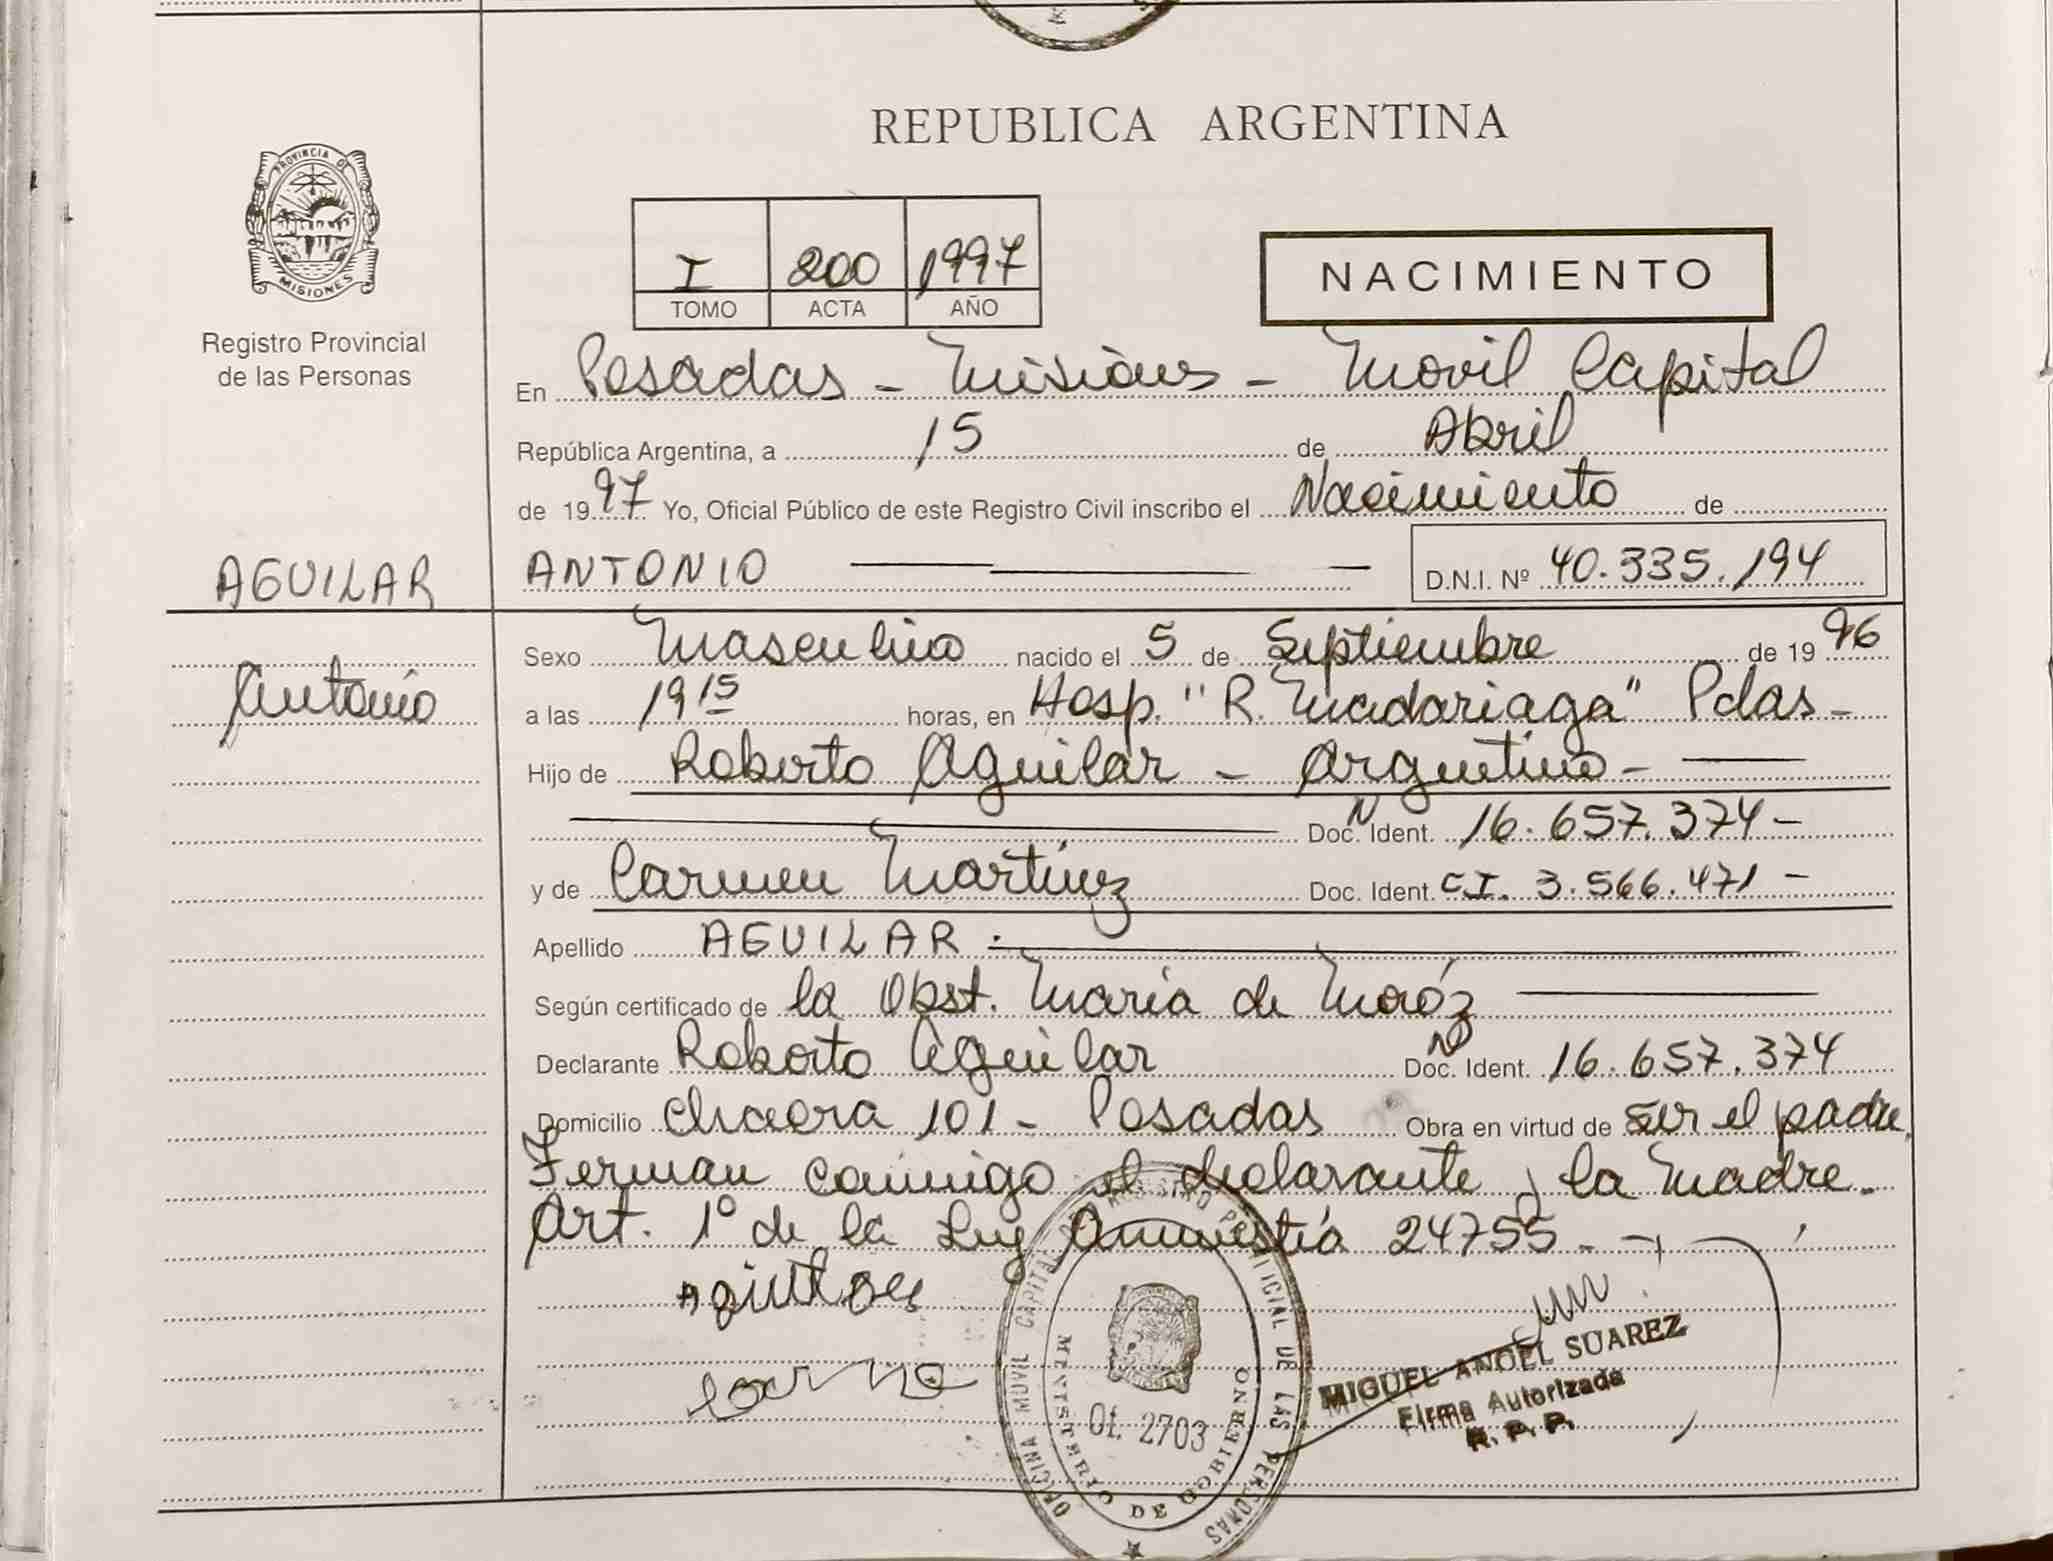 REPUBLICA ARGENTINA
PROVINCIA DE MISIONES
Registro Provincial
de las Personas
I 200 1997
TOMO ACTA AÑO
NACIMIENTO
En Posadas - Misiones - Movil Capital
República Argentina, a 15 de Abril
de 1997 Yo, Oficial Público de este Registro Civil inscribo el Nacimiento de
AGUILAR
ANTONIO D.N.I. Nº 40.335.194
Antonio
Sexo Masculino nacido el 5 de Septiembre de 1996
a las 19 15 horas, en Hosp. "R. Madariaga" Pdas -
Hijo de Roberto Aguilar - Argentino -
Doc. N Ident. 16.657.374 -
y de Carmen Martinez Doc. Ident. C.I. 3.566.471 -
Apellido AGUILAR.
Según certificado de la Obst. Maria de Moróz
Declarante Roberto Aguilar Doc. Ident. 16.657.374
Domicilio Chacra 101 - Posadas Obra en virtud de ser el padre,
Ferman conmigo el declarante y la Madre.
Art. 1º de la Ley Amnistía 24755. -
OFICINA MOVIL CAPITAL DEL REGISTRO PROVINCIAL DE LAS PERSONAS
MINISTERIO DE GOBIERNO
Of. 2703
MIGUEL ANGEL SUAREZ
Firma Autorizada
R. P. P.